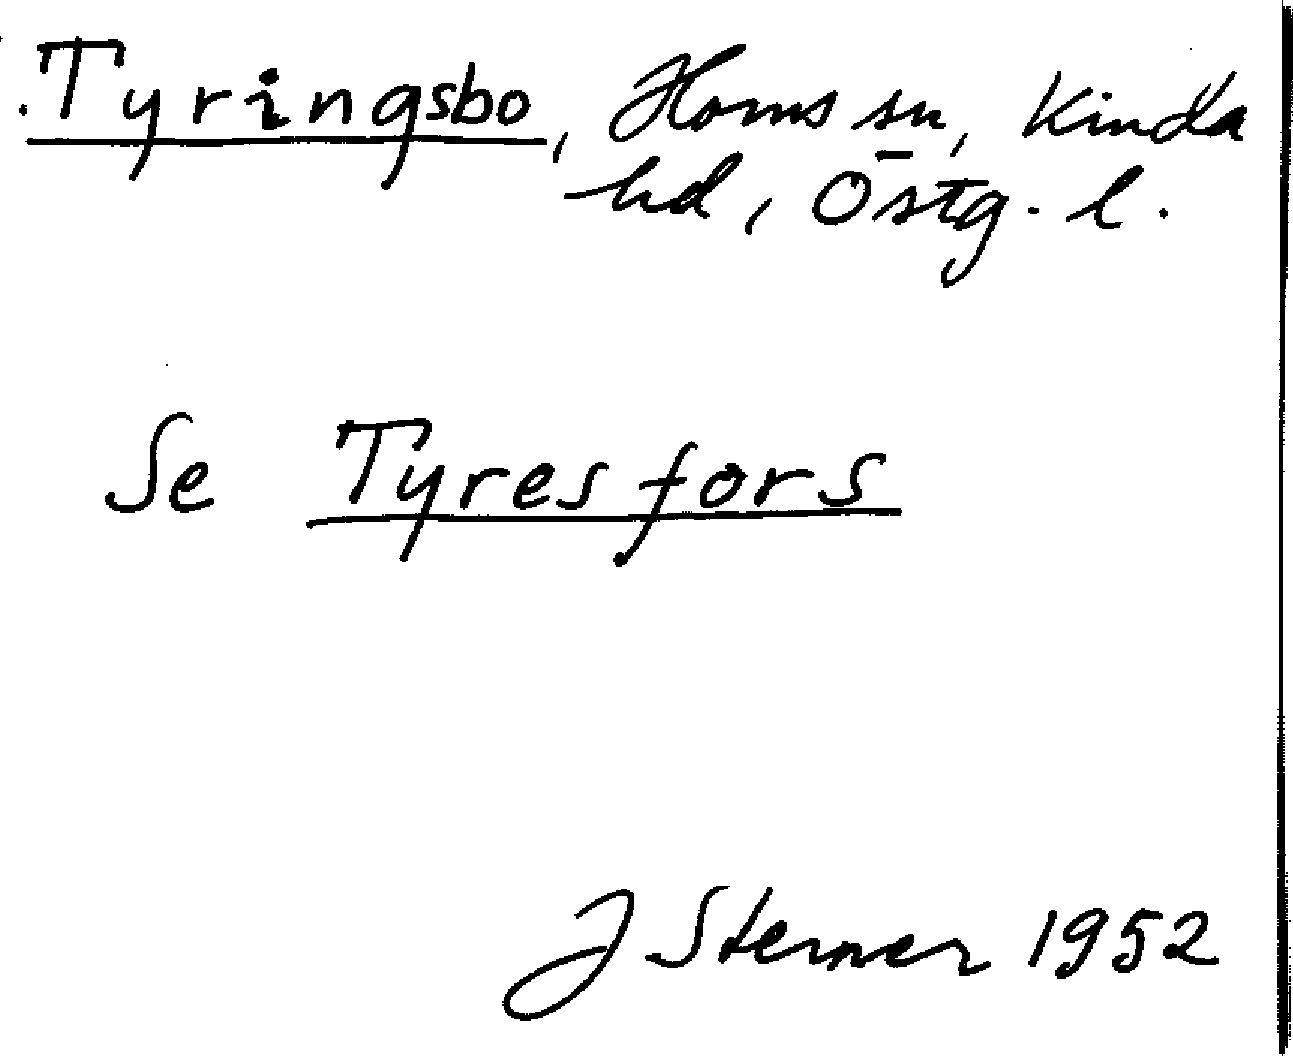 Tyringsbo, Horns sn, Kinda
hd, Östg. l.
Se Tyresfors
J Sterner 1952